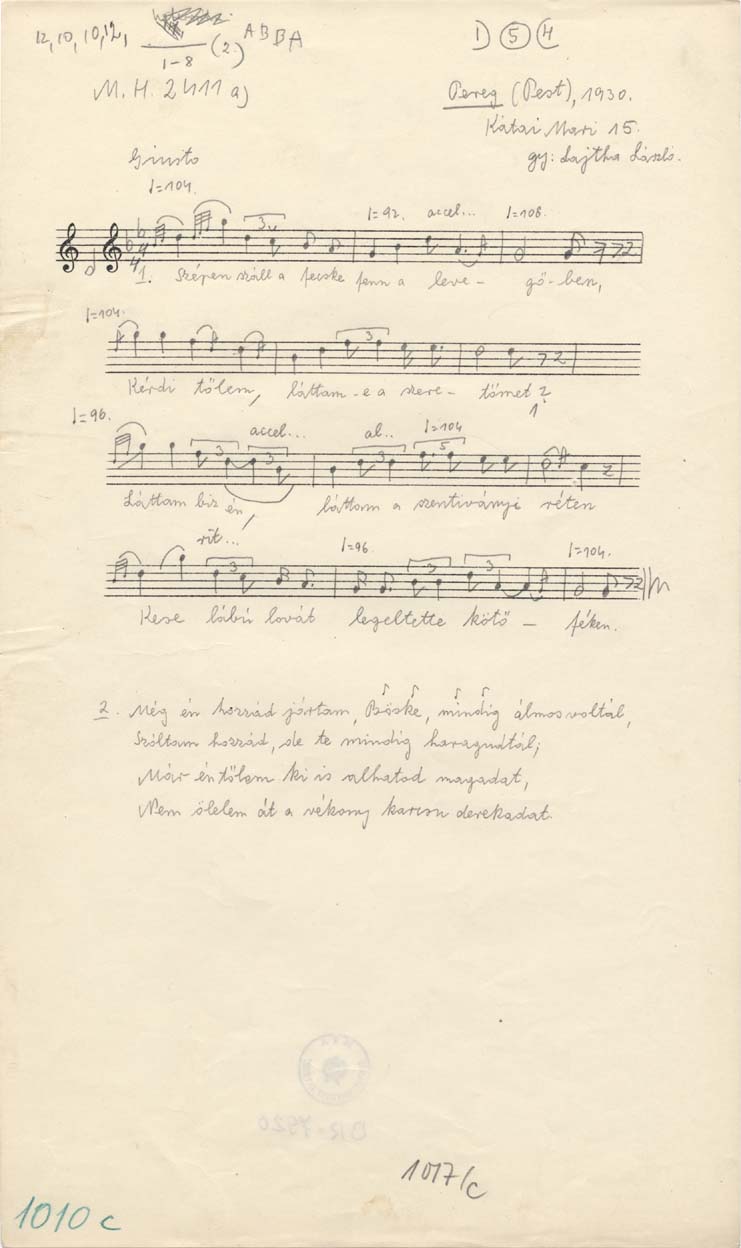 12, 10, 10, 12, 1-8 (2.) A B B A
1) 5 4(
M. H. 2411 a)
Pereg (Pest), 1930.
Kátai Mari 15.
gy: Lajtha László.
Giusto
♩=104.
♩=92. accel... ♩=108.
1. Szépen száll a fecske fenn a leve- gő-ben,
♩=104.
Kérdi tőlem, láttam-e a szere- tőmet?
♩=96. accel... al.. ♩=104
Láttam biz én, láttam a szentiványi réten
rit... ♩=96. ♩=104.
Kese lábú lovát legeltette kötő- féken.
2. Még én hozzád jártam, Böske, mindig álmos voltál,
Szóltam hozzád, de te mindig haragudtál;
Már én tőlem ki is alhatod magadat,
Nem ölelem át a vékony karcsu derekadat.
BR-7920
1017/c
1010 c